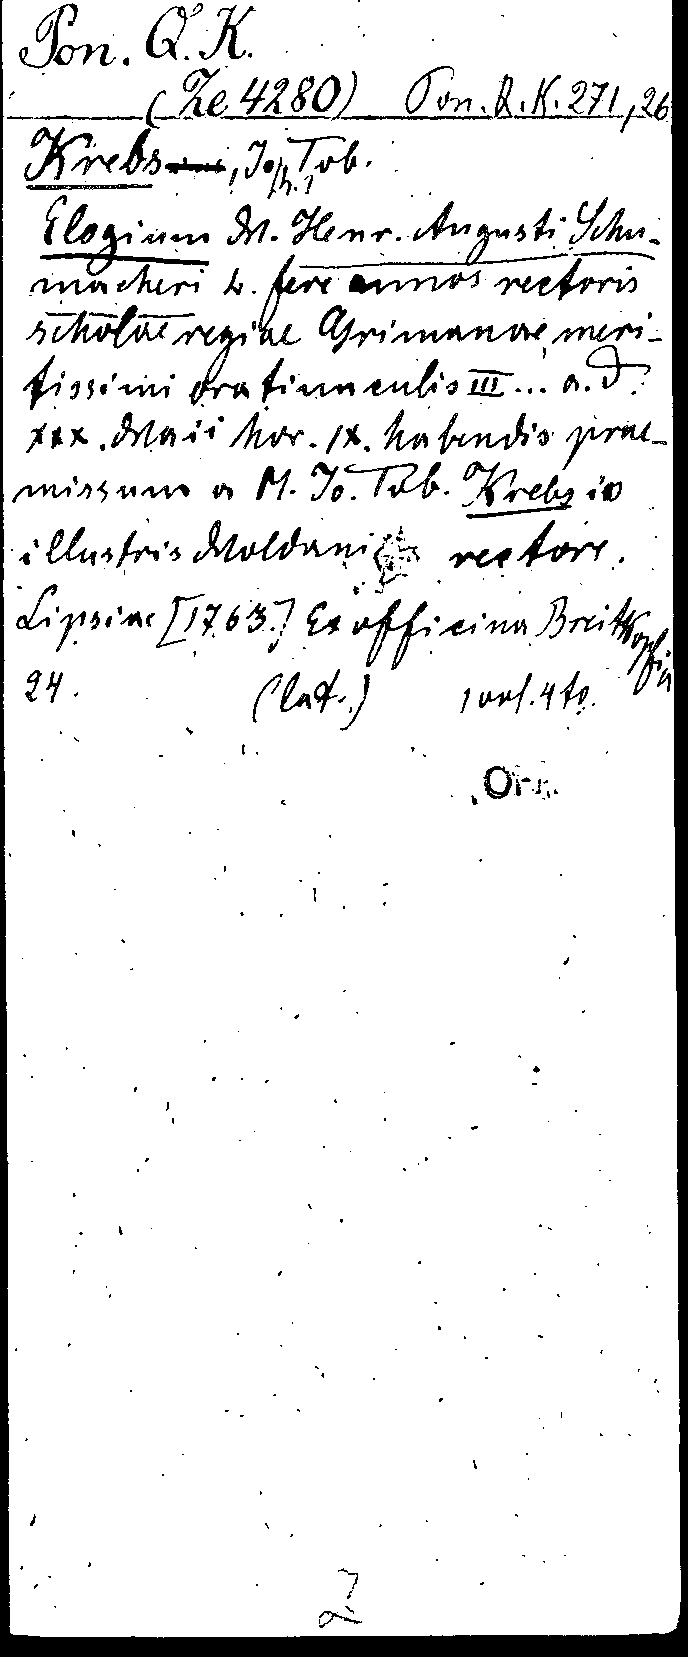 Pon. Q. K.
(Ze 4280) Pon. Q. K. 271, 26
Krebs, Joh. Tob.
Elogium M. Henr. Augusti Schu-
macheri L. fere annos rectoris
scholae regiae Grimanae meri-
tissimi oratiunculis III... a. d.
xxx. Maii hor. IX. habendis prae-
missum a M. Jo. Tob. Krebsio
illustris Moldani rectore.
Lipsiae [1763.] Ex officina Breitkopfia
24. (lat.) 1 vol. 4to.